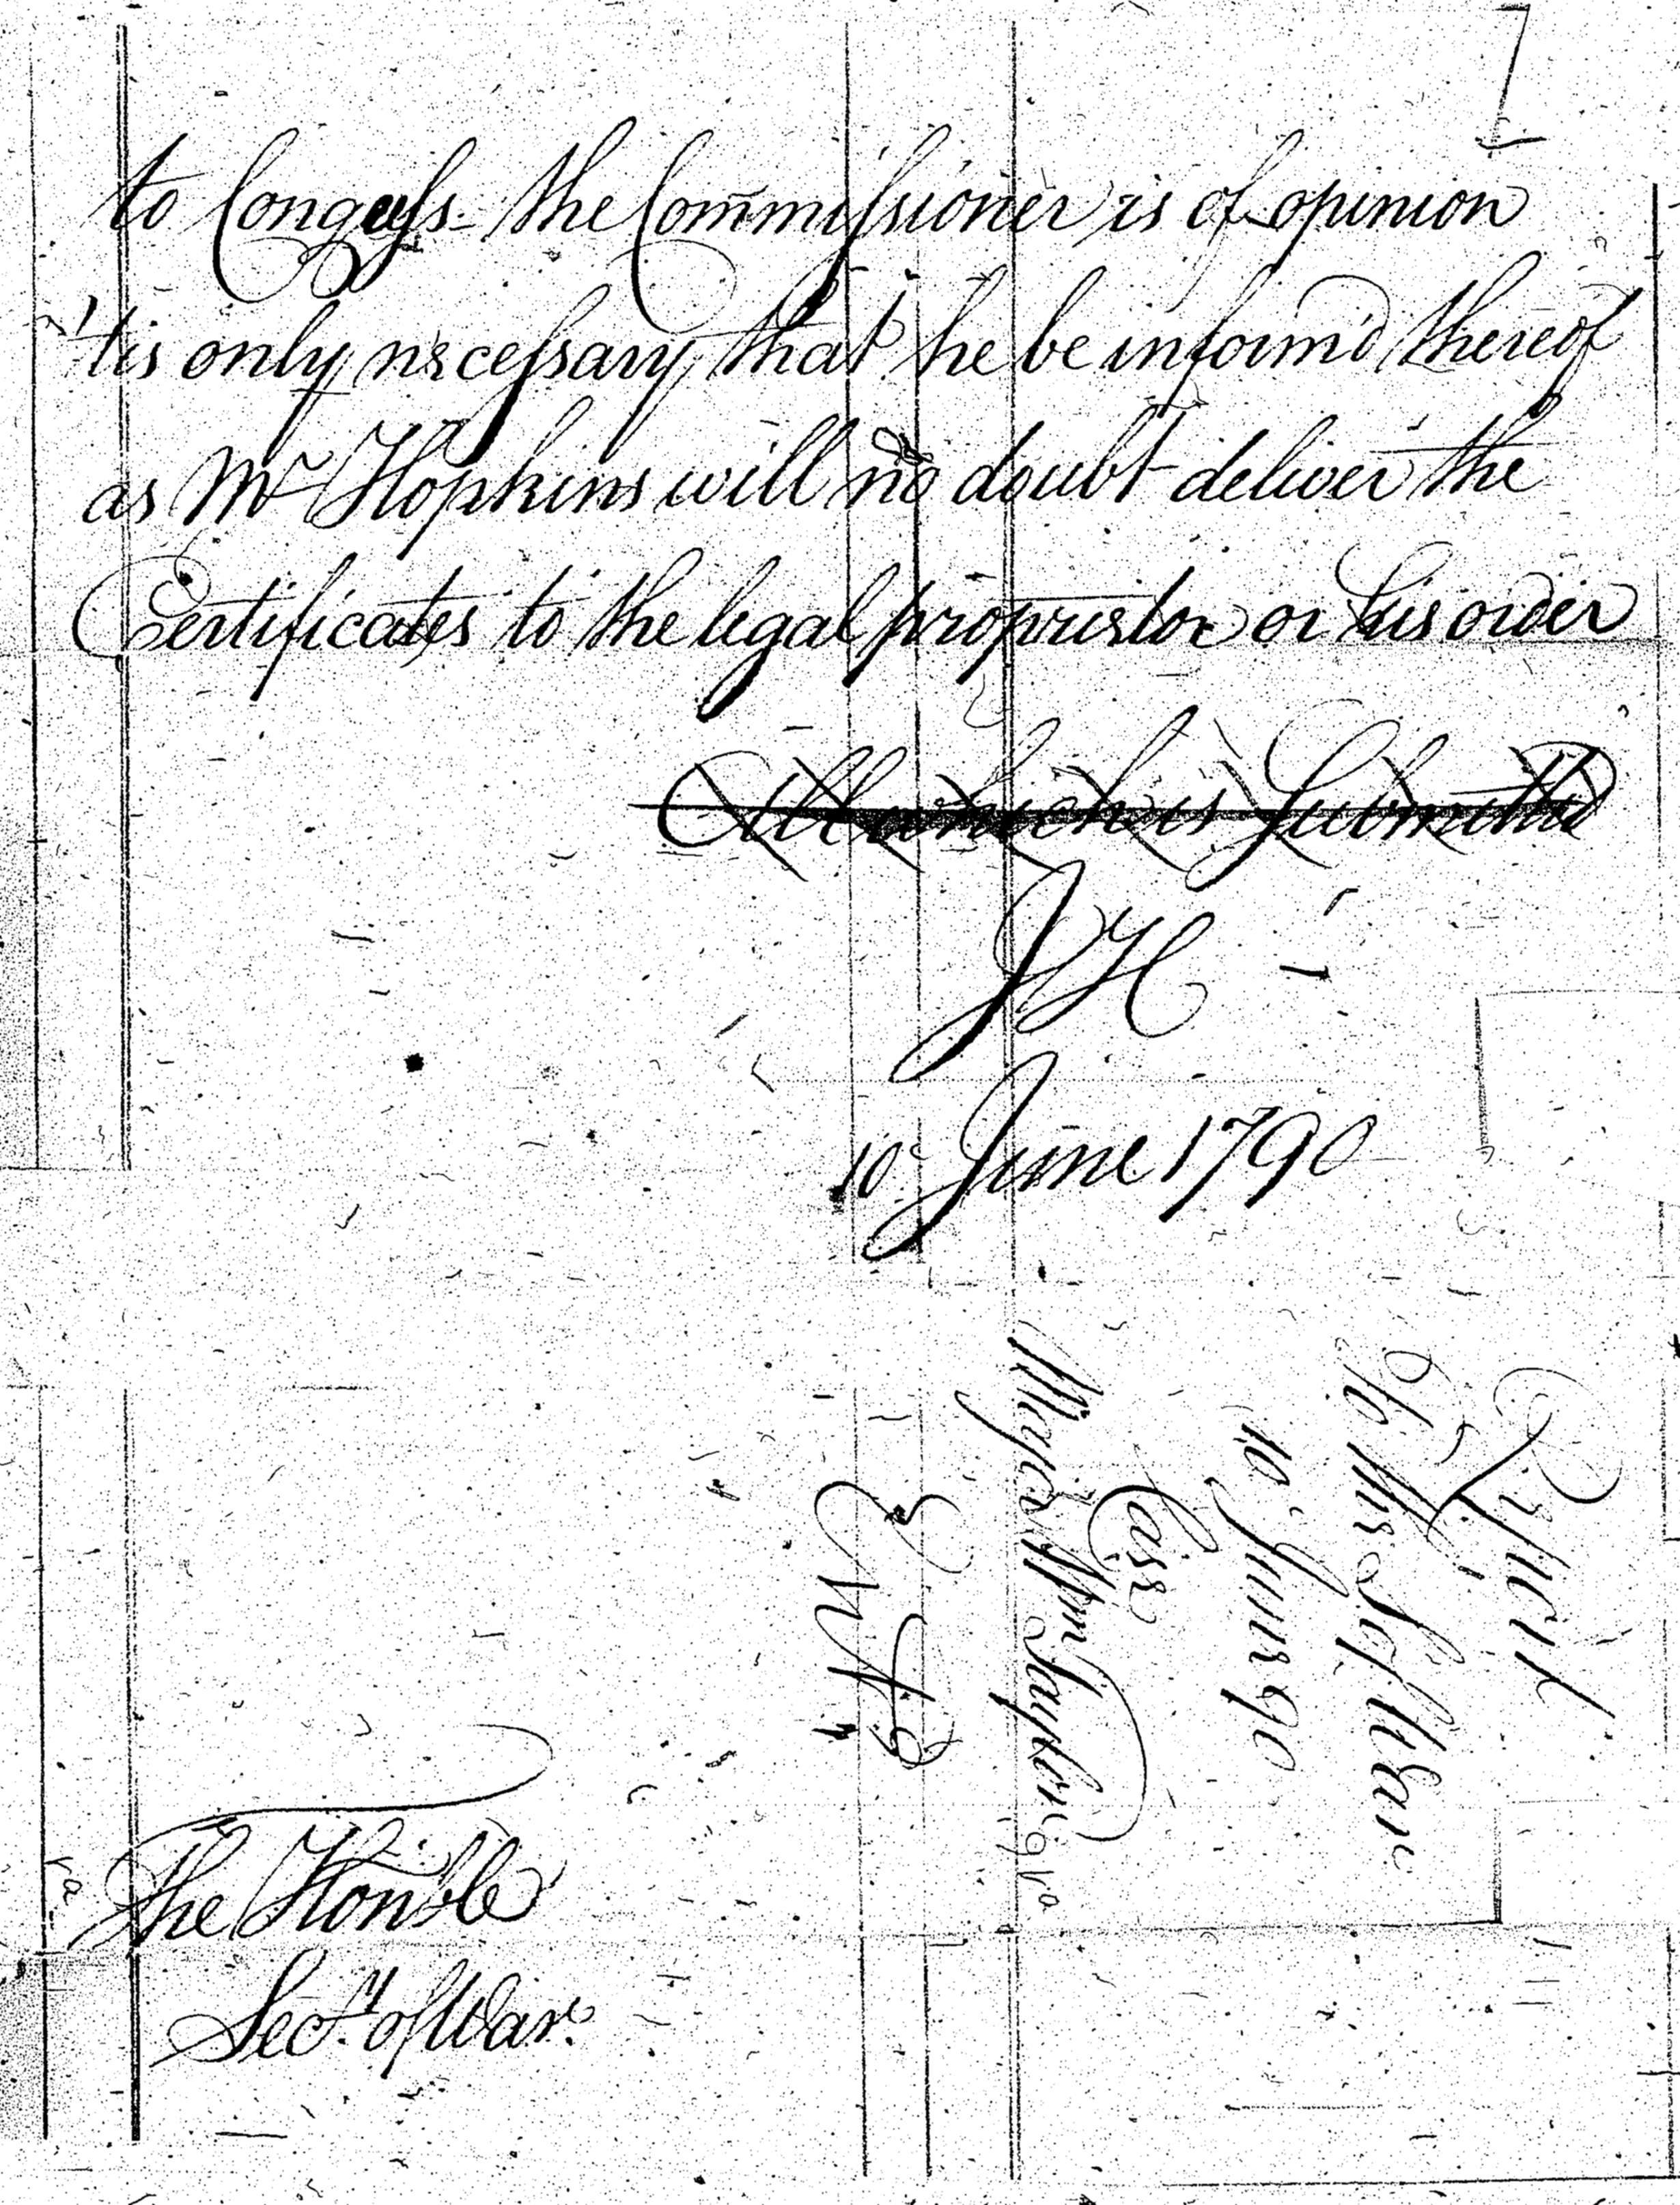 to Congress - the Commissioner is of opinion
'tis only necessary that he be inform'd thereof
as Mr Hopkins will no doubt deliver the
Certificates to the legal proprietor or his order
All which is Submitted
JH
10 June 1790
Report
To the Sec.y War
10 June 90
Case
Major Wm Taylor
The Honble
Secy. of War.